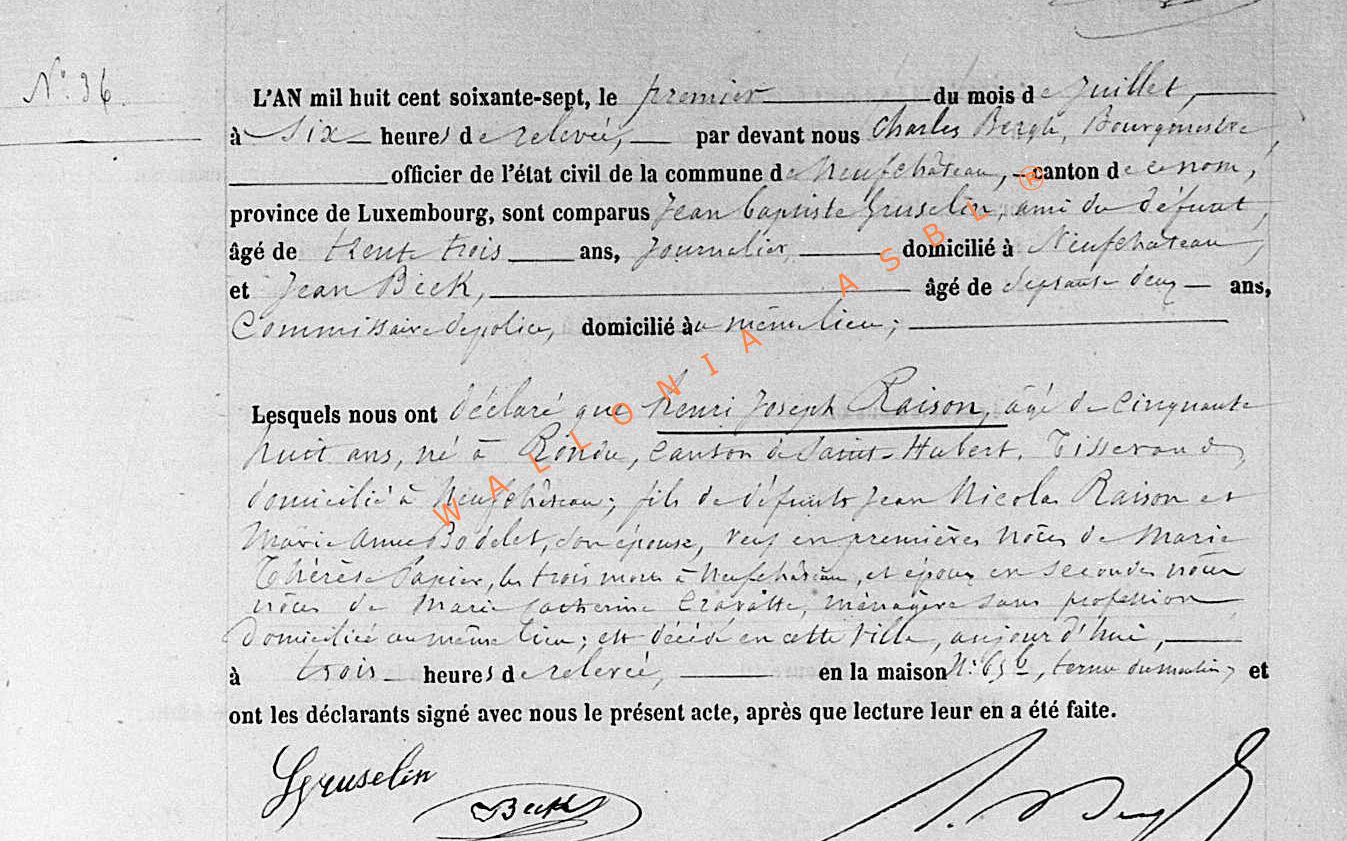 N° 36.
L'AN mil huit cent soixante-sept, le premier du mois de Juillet,
à six heures de relevée, par devant nous Charles Bergh, Bourgmestre
officier de l'état civil de la commune de Neufchâteau, canton de ce nom,
province de Luxembourg, sont comparus Jean Baptiste Gruselin, ami du défunt,
âgé de trente trois ans, Journalier, domicilié à Neufchateau,
et Jean Beck, âgé de septante deux ans,
Commissaire de police, domicilié au même lieu;
Lesquels nous ont déclaré que henri Joseph Raison, âgé de cinquante
huit ans, né à Rondu, canton de Saint-Hubert, Tisserand,
domicilié à Neufchâteau; fils de défunts Jean Nicolas Raison et
Marie Anne Bodelet, son épouse, veuf en premières nôces de Marie
Thérèse Papier, les trois morts à Neufchâteau, et époux en secondes nôces
nôces de Marie Catherine Cravatte, ménagère sans profession
Domiciliée au même lieu; est décédé en cette Ville, aujourd'hui,
à trois heures de relevée, en la maison N° 65 b, et
ont les déclarants signé avec nous le présent acte, après que lecture leur en a été faite.
Gruselin
Beck
WALLONIA ASBL ®